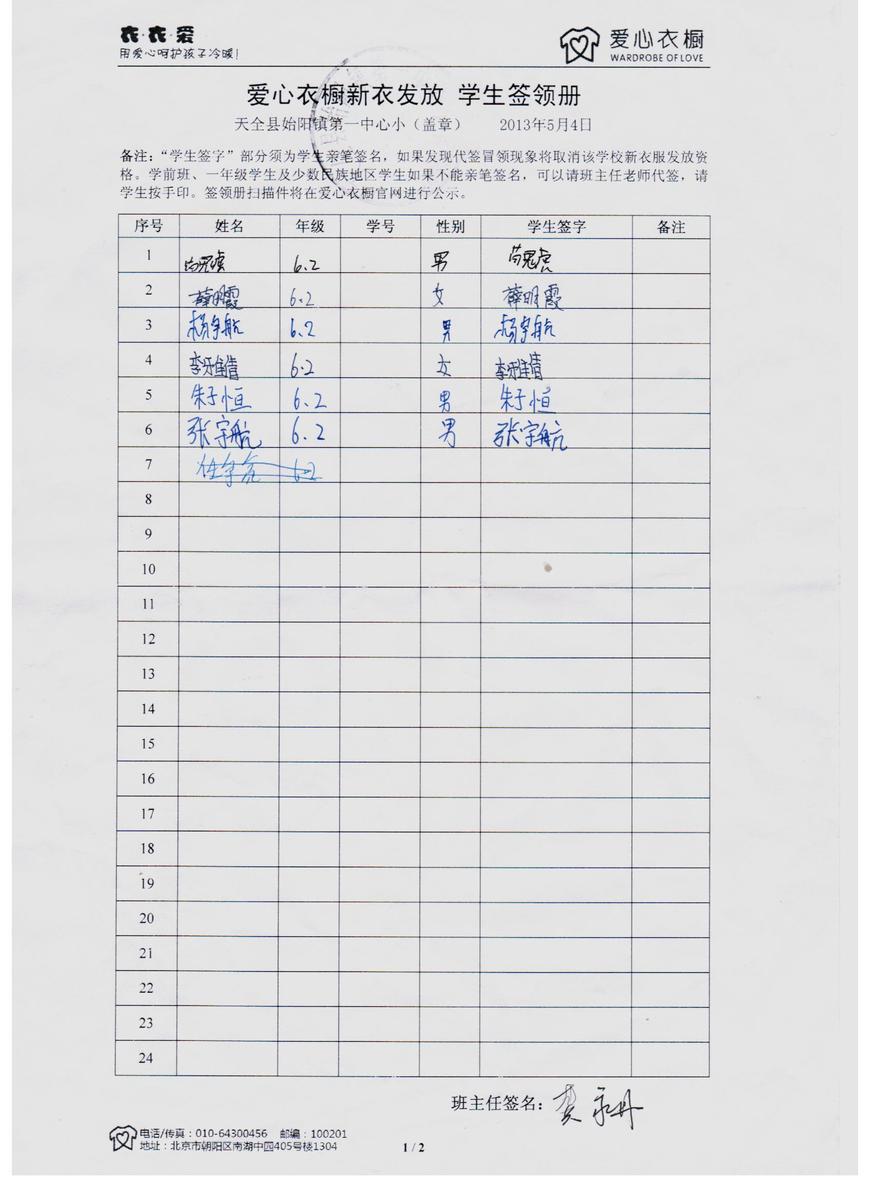 衣·衣·爱
用爱心呵护孩子冷暖!
爱心衣橱
WARDROBE OF LOVE
爱心衣橱新衣发放 学生签领册
天全县始阳镇第一中心小（盖章） 2013年5月4日
备注：“学生签字”部分须为学生亲笔签名，如果发现代签冒领现象将取消该学校新衣服发放资
格。学前班、一年级学生及少数民族地区学生如果不能亲笔签名，可以请班主任老师代签，请
学生按手印。签领册扫描件将在爱心衣橱官网进行公示。
序号 姓名 年级 学号 性别 学生签字 备注
1 6.2 男
2 薛明霞 6.2 女 薛明霞
3 杨宇航 6.2 男 杨宇航
4 李 6.2 女 李
5 朱于恒 6.2 男 朱于恒
6 张宇航 6.2 男 张宇航
7 6.2
8
9
10
11
12
13
14
15
16
17
18
19
20
21
22
23
24
班主任签名：
电话/传真：010-64300456 邮编：100201
地址：北京市朝阳区南湖中园405号楼1304
1 / 2